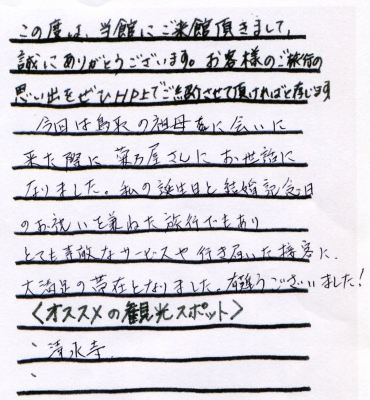 この度は、当館にご来館頂きまして、
誠にありがとうございます。お客様のご旅行の
思い出をぜひHP上でご紹介させて頂ければと存じます
今回は鳥取の祖母に会いに
来た際に菊乃屋さんにお世話に
なりました。私の誕生日と結婚記念日
のお祝いを兼ねた旅行でもあり
とても素敵なサービスや行き届いた接客に、
大満足の滞在となりました。有難うございました!
<オススメの観光スポット>
・清水寺
・